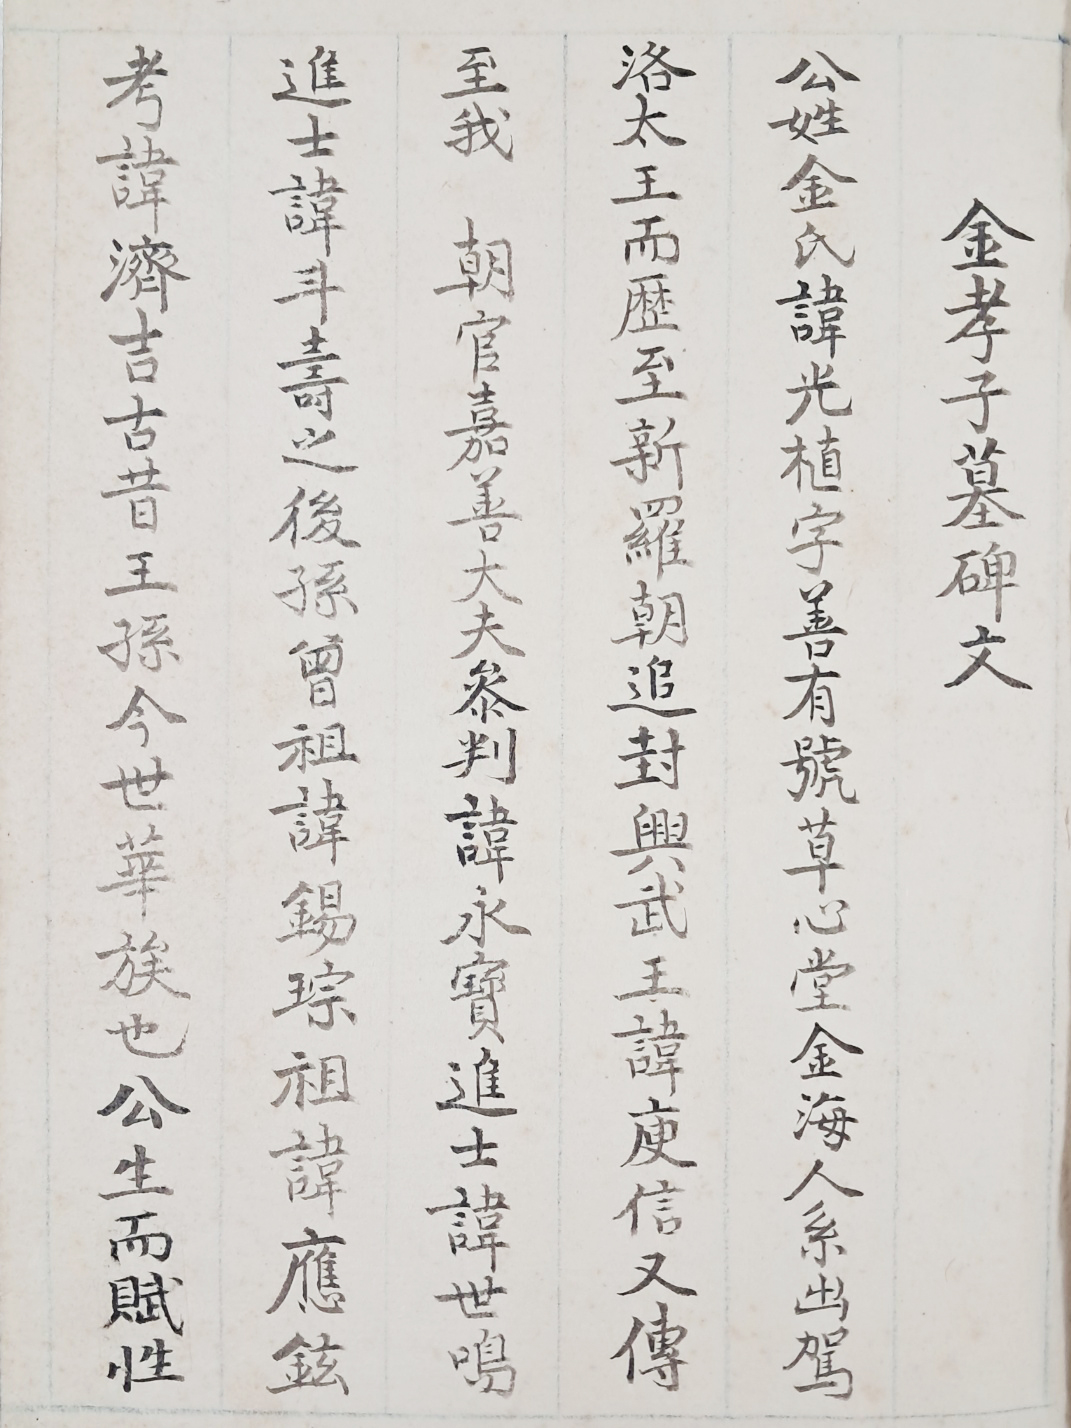 金孝子墓碑文
公姓金氏諱光植字善有號草心堂金海人系出駕
洛太王而歴至新羅朝追封興武王諱庾信又傳
至我 朝官嘉善大夫參判諱永寶進士諱世鳴
進士諱斗壽之後孫曾祖諱錫琮祖諱應鉉
考諱濟吉古昔王孫今世華族也公生而賦性